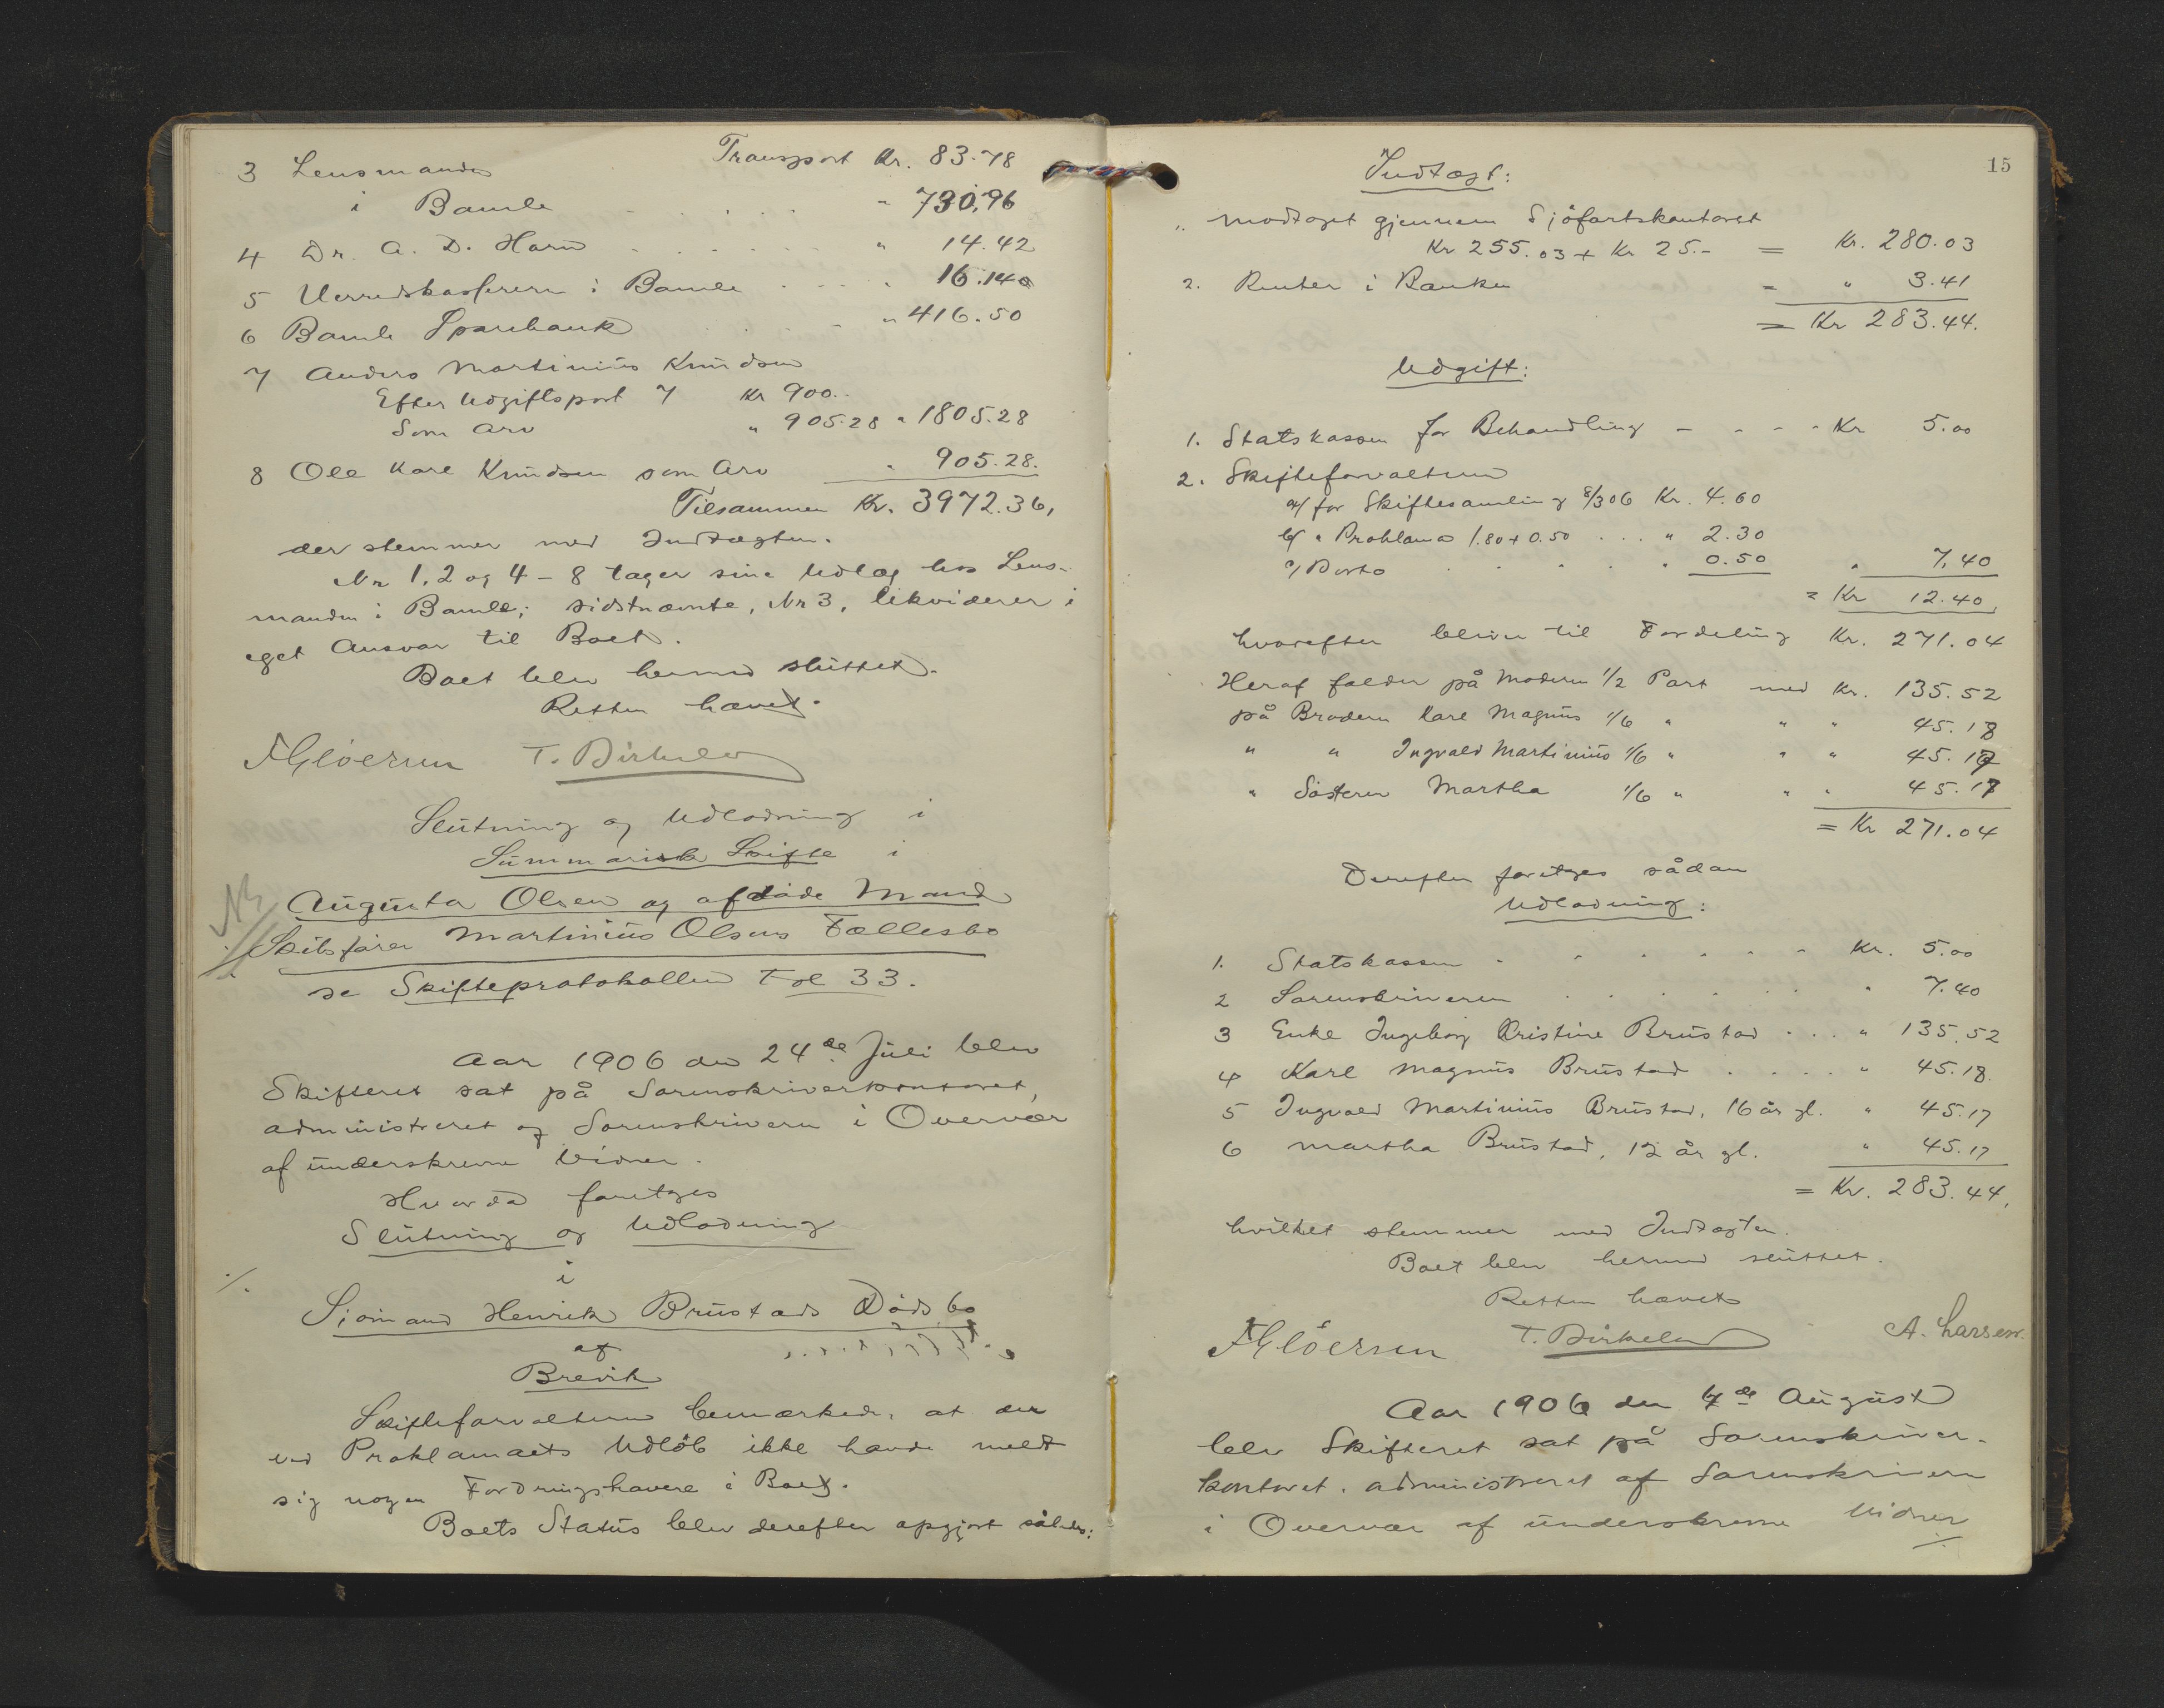 Transport Kr. 83.78
3 Lensmanden
i Bamle . . . . . " 730.96
4 Dr. A. D. Horn . . . . . " 14.42
5 Herredskassereren i Bamle . . . " 16.140
6 Bamle Sparebank . . . . " 416.50
7 Anders Martinius Knudsen
Efter Udgiftspost 7 Kr 900.-
Som Arv " 905.28 " 1805.28
8 Ole Karl Knudsen som Arv " 905.28.
Tilsammen Kr. 3972.36,
der stemmer med Indtægten.
Nr 1, 2 og 4 - 8 tager sine Udlæg hos Lens-
manden i Bamle; sidstnævnte, Nr 3, likviderer i
eget Ansvar til Boet.
Boet blev hermed sluttet.
Retten hævet.
Gløersen T. Birkeland
Slutning og Udlodning i
Summarisk Skifte i
Augusta Olsen og afdøde Mand
Skibsfører Martinius Olsens Fællesbo
se Skifteprotokollen Fol 33.
Aar 1906 den 24de Juli blev
Skifteret sat på Sorenskriverkontoret,
administreret af Sorenskriveren i Overvær
af underskrevne Vidner.
Hvorda foretoges
Slutning og Udlodning
i
Sjømand Henrik Brustads Dødsbo
af
Brevik
Skifteforvalteren bemærkede, at der
ved Proklamaets Udløb ikke havde meldt
sig nogen Fordringshavere i Boet.
Boets Status blev derefter opgjort således:
15
Indtægt:
" Modtaget gjennem Sjøfartskontoret
Kr 255.03 + Kr 25.- = Kr. 280.03
2. Renter i Banken = " 3.41
= Kr 283.44.
Udgift:
1. Statskassen for Behandling - - - - Kr 5.00
2. Skifteforvalteren
a/ for Skiftesamling 8/3 06 Kr. 4.60
b/ " Proklama 1.80 + 0.50 . . . " 2.30
c/ Porto . . . . . " 0.50 " 7.40
= Kr 12.40
hvorefter bliver til Fordeling Kr. 271.04
Heraf falder på Moderen 1/2 Part med Kr. 135.52
på Broderen Karl Magnus 1/6 " " " 45.18
" " Ingvald Martinius 1/6 " " " 45.17
" Søsteren Martha 1/6 " " " 45.17
= Kr 271.04
Derefter foretoges sådan
Udlodning:
1. Statskassen . . . . . . Kr. 5.00
2 Sorenskriveren . . . . . . " 7.40
3 Enke Ingeborg Kristine Brustad . . . " 135.52
4 Karl Magnus Brustad . . . . " 45.18.
5 Ingvald Martinius Brustad, 16 år gl. " 45.17
6 Martha Brustad, 12 år gl. " 45.17
= Kr. 283.44,
hvilket stemmer med Indtægten.
Boet blev hermed sluttet.
Retten hævet
Gløersen T. Birkeland A. Larsen.
Aar 1906 den 4de August
blev Skifteret sat på Sorenskriver-
kontoret, administreret af Sorenskriveren
i Overvær af underskrevne Vidner